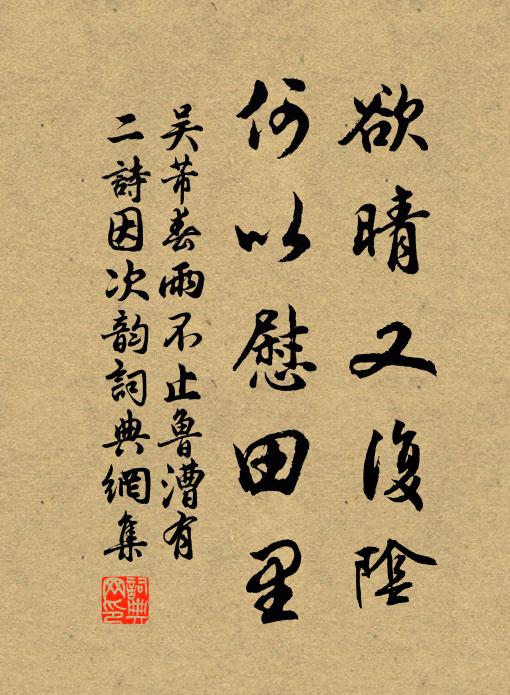 欲晴又復陰
何以慰田里
吴芾春雨不止魯漕有
二詩因次韵詞典網集
詞典網印